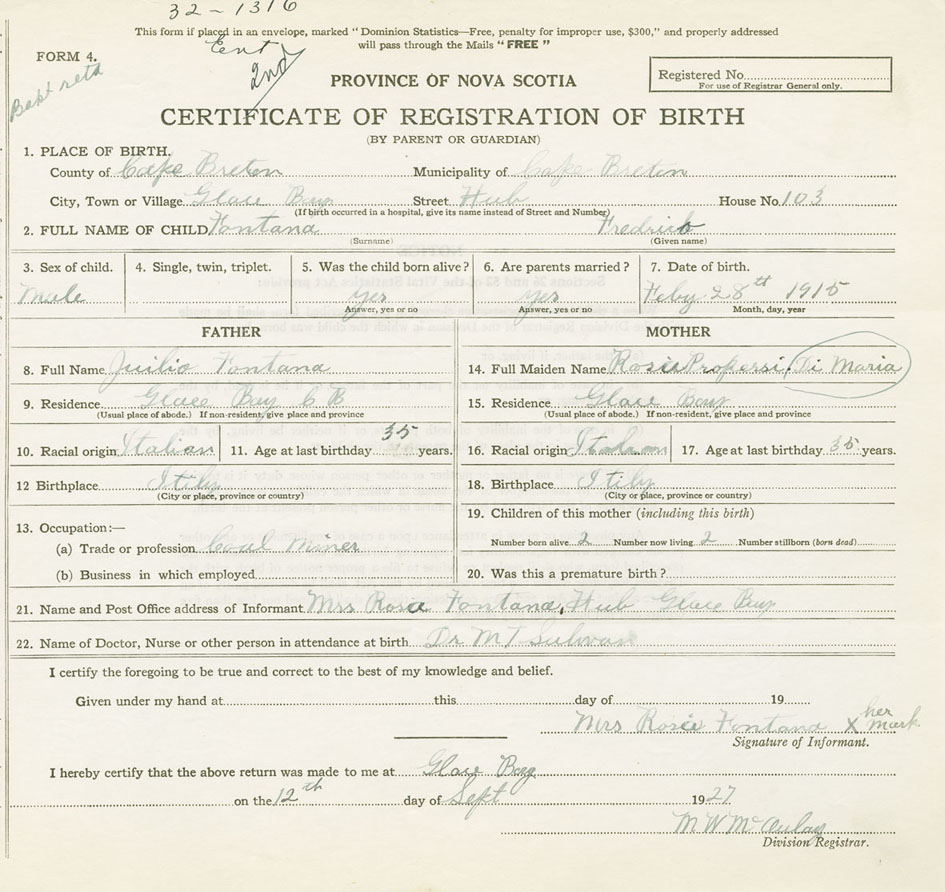 32-1316
This form if placed in an envelope, marked "Dominion Statistics—Free, penalty for improper use, $300," and properly addressed
will pass through the Mails "FREE"
FORM 4.
Ent
2nd
PROVINCE OF NOVA SCOTIA
Registered No.
For use of Registrar General only.
CERTIFICATE OF REGISTRATION OF BIRTH
(BY PARENT OR GUARDIAN)
1. PLACE OF BIRTH.
County of Cape Breton Municipality of Cape Breton
City, Town or Village Glace Bay Street Hub House No. 103
(If birth occurred in a hospital, give its name instead of Street and Number)
2. FULL NAME OF CHILD Fontana Fredrick
(Surname) (Given name)
3. Sex of child. 4. Single, twin, triplet. 5. Was the child born alive? 6. Are parents married? 7. Date of birth.
Male yes yes Feby 28th 1915
Answer, yes or no Answer, yes or no Month, day, year
FATHER MOTHER
8. Full Name Juilio Fontana 14. Full Maiden Name Rosie Properssi, Di Maria
9. Residence Glace Bay C B 15. Residence Glace Bay
(Usual place of abode.) If non-resident, give place and province (Usual place of abode.) If non-resident, give place and province
10. Racial origin Italian 11. Age at last birthday 35 years. 16. Racial origin Italian 17. Age at last birthday 35 years.
12 Birthplace Itily 18. Birthplace Itily
(City or place, province or country) (City or place, province or country)
13. Occupation:— 19. Children of this mother (including this birth)
(a) Trade or profession Coal Miner Number born alive 2 Number now living 2 Number stillborn (born dead)
(b) Business in which employed 20. Was this a premature birth?
21. Name and Post Office address of Informant Mrs Rosie Fontana, Hub Glace Bay
22. Name of Doctor, Nurse or other person in attendance at birth Dr M T Sulivan
I certify the foregoing to be true and correct to the best of my knowledge and belief.
Given under my hand at this day of 19
Mrs Rosie Fontana X her mark
Signature of Informant.
I hereby certify that the above return was made to me at Glace Bay
on the 12th day of Sept 1927
M W McAulay
Division Registrar.